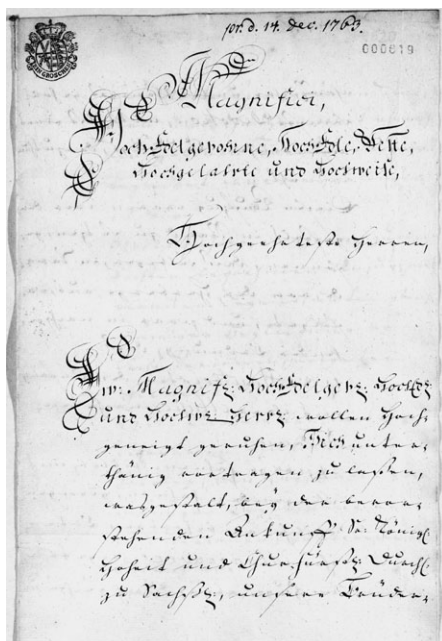 pr. d. 14. Dec. 1763.
000819
EIN GROSCHEN
Magnifici,
HochEdelgebohrne, HochEdle, Veste,
Hochgelahrte und Hochweise,
Hochgeehrteste Herren,
Ew: Magnifz: HochEdelgerz: HochEdz
und Hochwz: Herrz wollen hoch-
geneigt geruhen, Sich unter-
thänig vortragen zu laßen,
wasgestalt, bey der bevor-
stehenden Ankunfft Sr: Königl:
Hoheit und Churfürstz: Durchlz
zu Sachßz:, unsere Brüder-